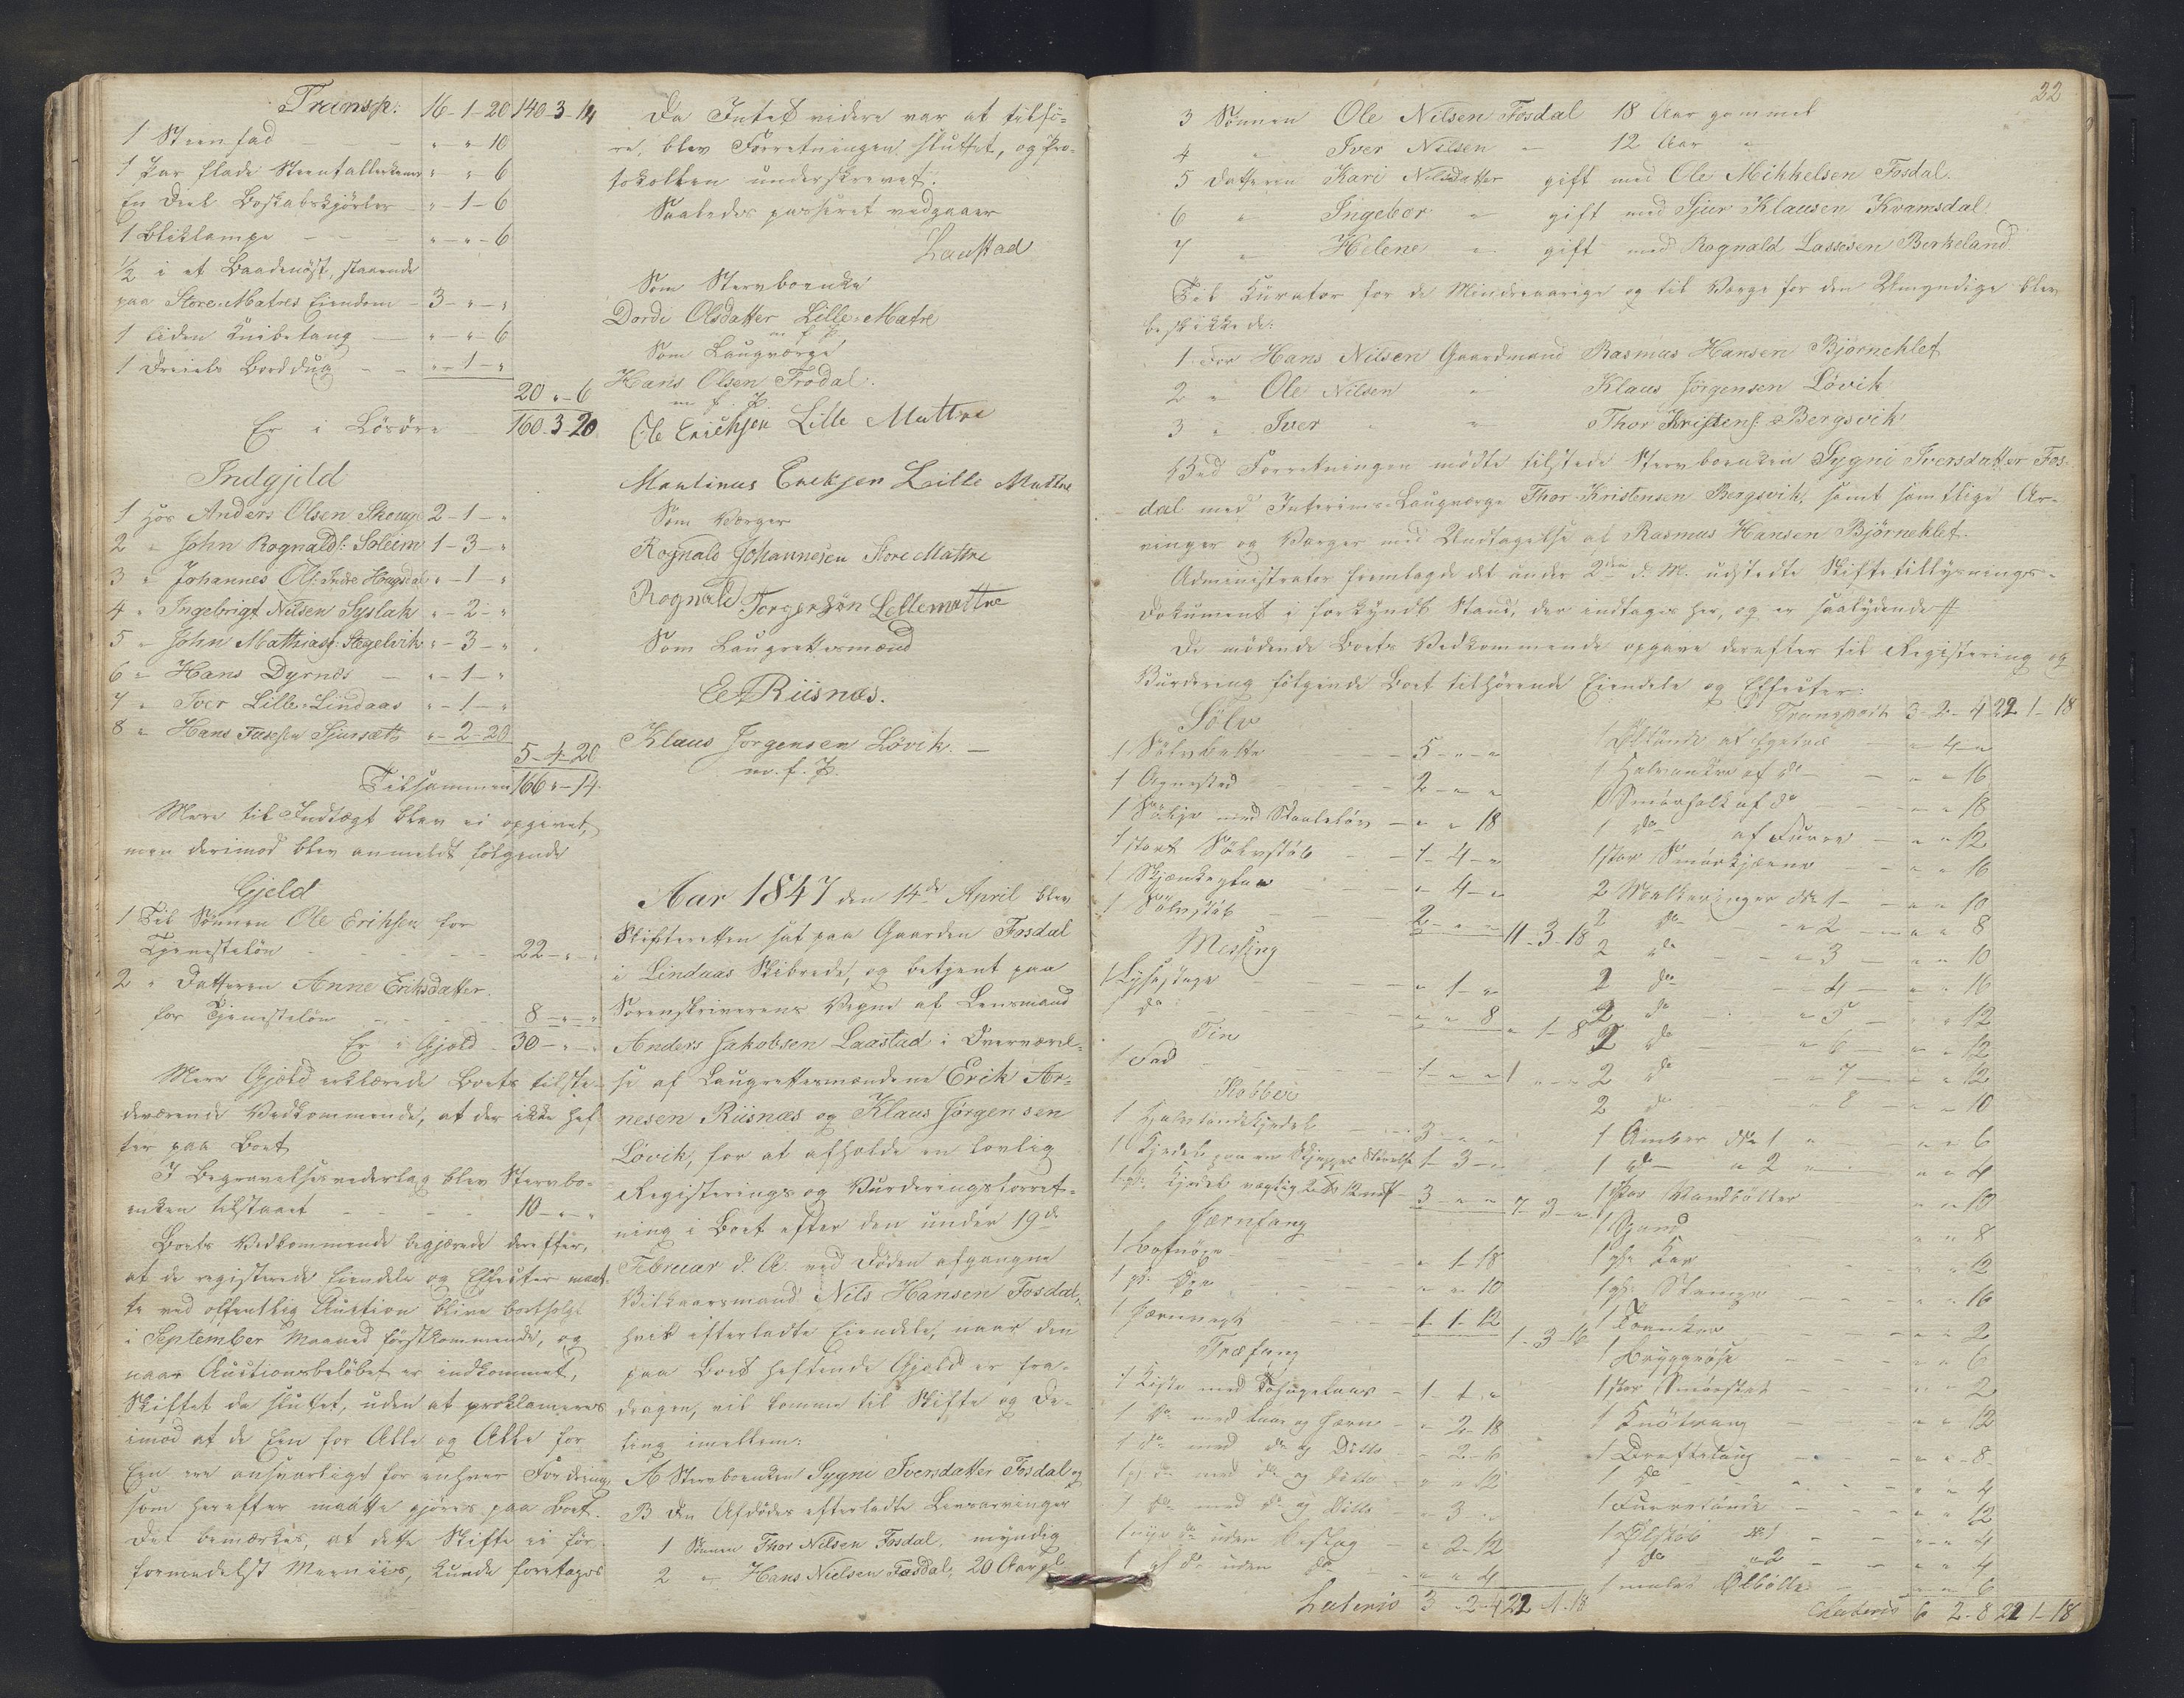 Transp: 16-1-20 140-3-14
1 Steenfad - - - " " 10
1 Par flade Steentallerkener " " 6
En Deel Boskabskjørler - " - 1 - 6
1 Bliklampe - - - " - " - 6
½ i et Baadenøst, staaende
paa Store-Matres Eiendom - 3 - " - "
1 liden Knibetang - " - " - 6
1 Dreiels Borddug - - " - 1 - "
20 " - 6
Er i Løsøre 160-3-20
Indgjeld
1 hos Anders Olsen Skouge 2-1-"
2 " John Rognalds: Soleim 1-3-"
3 " Johannes Ols: Indre Hougsdal " - 1 - "
4 " Ingebrigt Nilsen Syslak " - 2 - "
5 " John Mathiass: Hegelvik " - 3 - "
6 " Hans Dyrnes - " - 1 - "
7 " Iver Lille-Lindaas " - 1 - "
8 " Hans Sjursæth " - 2-20
5-4-20
Tilsammen 166 " - 14
Mere til Indtægt blev ei opgivet,
men derimod blev anmeldt følgende
Gjeld
1 Til Sønnen Ole Erichsen for
Tjenesteløn - - - - 22 - " - "
2 " Datteren Anne Eriksdatter
for Tjenesteløn - - - 8 - " - "
Er i Gjæld - 30 - " - "
Mere Gjæld erklærede Boets tilste-
deværende Vedkommende, at der ikke hef-
ter paa Boet
I Begravelsesvederlag blev Stervbo-
enken tilstaaet - - - 10 - " - "
Boets Vedkommende begjærede derefter,
at de registerede Eiendele og Effecter maat-
te ved offentlig Auction blive bortsolgt
i September Maaned førstkommende, og
naar Auctionsbeløbet er indkommet,
Skiftet da sluttet, uden at proklameres
imod at de Een for Alle og Alle for
Een ere ansvarlige for enhver Fordring,
som herefter maatte gjøres paa Boet.
Det bemærkes, at dette Skifte ei før
formedelst kunde foretages
Da Intet videre var at tilfø-
re, blev Forretningen sluttet, og Pro-
tokollen underskrevet.
Saaledes passeret vedgaaer
Laastad
Som Stervboenke
Dorde Olsdatter Lille-Matre
m f P
Som Laugværge
Hans Olsen Frodal.
m. f. P.
Ole Erichsen Lille Mattre
Martinus Ericksen Lille Mattre
Som Værger
Rognald Johannesen Store Mattre
Rognald Torgersøn Lellemattre
Som Laugrettesmænd
E. Riisnæs.
Klaus Jørgensen Løvik. -
m. f. P.
Aar 1847 den 14de April blev
Skifteretten sat paa Gaarden Fosdal
i Lindaas Skibrede, og betjent paa
Sorenskriverens Vegne af Lensmand
Anders Jakobsen Laastad i Overværel-
se af Laugrettesmændene Erick Ar-
nesen Riisnæs og Klaus Jørgensen
Løvik, for at afholde en lovlig
Registerings og Vurderingsforret-
ning i Boet efter den under 19de
Februar d. A. ved Døden afgangne
Vilkaarsmand Nils Hansen Fosdal,
hvis efterladte Eiendele, naar den
paa Boet heftende Gjæld er fra-
dragen, vil komme til Skifte og De-
ling imellem:
A Stervboenken Sygni Iversdatter Fosdal og
B Den Afdødes efterladte Livsarvinger
1 Sønnen Thor Nilsen Fosdal, myndig
2 " Hans Nielsen Fosdal, 20 Aar gl
22
3 Sønnen Ole Nilsen Fosdal 18 Aar gammel
4 " Iver Nilsen " 12 Aar "
5 Datteren Kari Nilsdatter gift med Ole Mikkelsen Fosdal.
6 " Ingebor " gift med Sjur Klausen Kvamsdal
7 " Helene " gift med Rognald Lassesen Berkeland
Til Kurator for de Mindreaarige og til Værge for den Umyndige blev
beskikkede:
1 For Hans Nilsen Gaardmand Rasmus Hansen Bjørneklet
2 " Ole Nilsen " Klaus Jørgensen Løvik
3 " Iver " " Thor Kristens: Bergsvik
Ved Forretningen mødte tilstede Stervboenken Sygni Iversdatter Fos-
dal med Interims-Laugværge Thor Kristensen Bergsvik, samt samtlige Ar-
vinger og Værger med Undtagelse af Rasmus Hansen Bjørneklet.
Administrator fremlagde det under 2den d. M. udstedte Skiftetillysnings-
Dokument i forkyndt Stand, der indtages her, og er saalydende //
De mødende Boets Vedkommende opgave derefter til Registering og
Vurdering følgende Boet tilhørende Eiendele og Effecter:
Sølv
1 Sølvbelte - - 5 - " - "
1 Agnestad - - 2 - " - "
1 med - " " 18
1 stort Sølvstøb - - 1-4-"
1 - - " 4 - "
1 Sølvstøb - - 2 - " - " 11-3-18
Messing
1 Lysestage - - " 1 - "
1 do - - " " 8 " 1-8
Tin
1 Fad - - 1 - " " 1 " "
Kobber
1 Halvtøndekjedel - 3 - " "
1 Kjedel paa en Skjeppes Størrelse 1-3-"
1 gl. Kjedel vægtig 2 12 - 3 - " " 7 3 "
Jærnfang
1 - " 1-18
1 gl. Øxe - " " 10
1 Jærnvægt - 1-1-12 1-3-16
Træfang
1 Kiste med - 1-1-"
1 do med Laas og Jærn - " 2-18
1 do med do og Ditto - 2-6
1 gl do med do og Ditto - " " 12
1 do med do og Ditto - " 3 "
1 nye do uden Beslag - " 2-12
1 gl do uden do " " 4
Lateris 3-2-4 22-1-18
Transport 3-2-4 22 1-18
1 Øltønde af Egetræ " 4 - "
1 Halvanker af do - " " 16
1 af do " " 18
1 do af Furre - " " 12
1 stor Smørkjerne - " " 16
2 Melkeringer No 1 - " " 10
2 do " 2 - " " 8
2 do " 3 - " " 10
2 do " 4 - " " 16
2 do " 5 - " " 12
2 do " 6 - " " 12
2 do " 7 - " " 12
2 do " 8 - " " 10
1 Ambar No 1 " " " 6
1 do " 2 " " " 4
1 Par Vandbøtter - " " 10
1 Spand " " 8
1 gl. Kar " " 12
1 gl. Stampe - " " 16
1 - " " 2
1 - " " 6
1 stor - " " 2
1 - " " 12
1 - " " 8
1 do " " 4
1 Furretønde - " " 12
1 Ølstøb No 1 - " " 4
1 do " 2 - " " 4
1 malet Ølbolle " " 6
Lateris 6 2-8 22 1-18